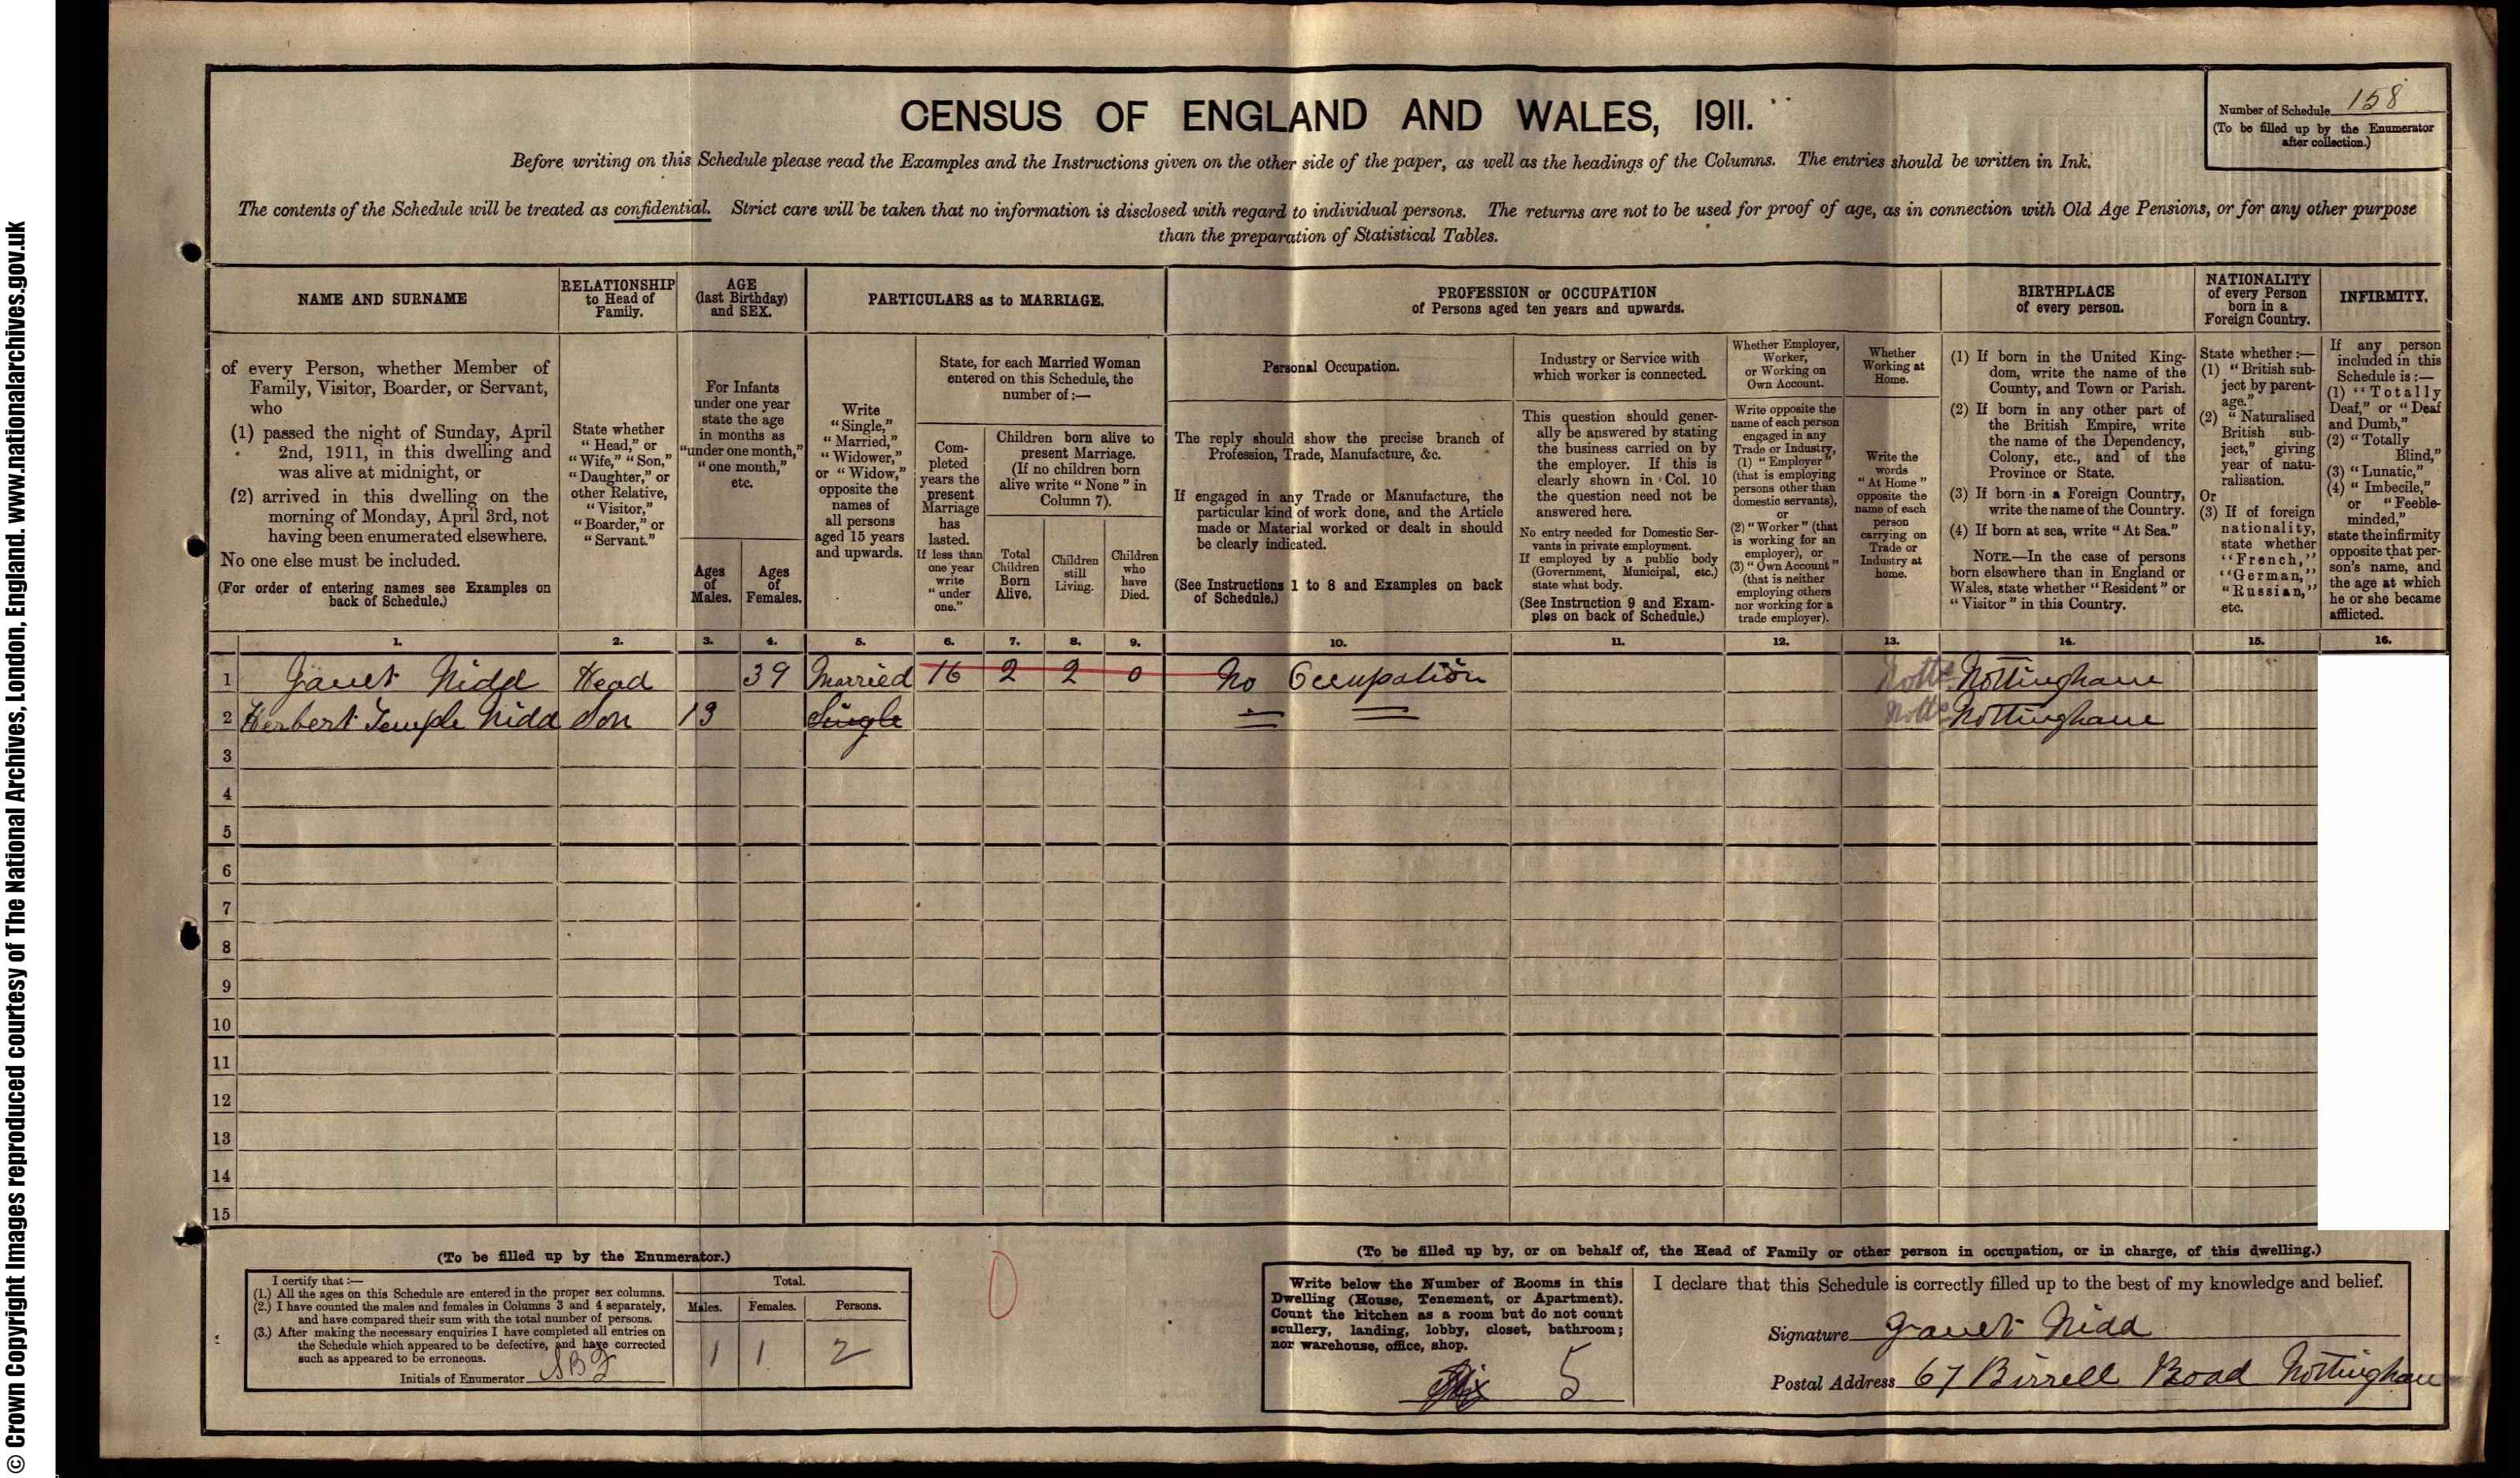 © Crown Copyright Images reproduced courtesy of The National Archives, London, England. www.nationalarchives.gov.uk
CENSUS OF ENGLAND AND WALES, 1911.
Number of Schedule 158
(To be filled up by the Enumerator
after collection.)
Before writing on this Schedule please read the Examples and the Instructions given on the other side of the paper, as well as the headings of the Columns. The entries should be written in Ink.
The contents of the Schedule will be treated as confidential. Strict care will be taken that no information is disclosed with regard to individual persons. The returns are not to be used for proof of age, as in connection with Old Age Pensions, or for any other purpose
than the preparation of Statistical Tables.
NAME AND SURNAME
of every Person, whether Member of
Family, Visitor, Boarder, or Servant,
who
(1) passed the night of Sunday, April
2nd, 1911, in this dwelling and
was alive at midnight, or
(2) arrived in this dwelling on the
morning of Monday, April 3rd, not
having been enumerated elsewhere.
No one else must be included.
(For order of entering names see Examples on
back of Schedule.)
RELATIONSHIP
to Head of
Family.
State whether
"Head," or
"Wife," "Son,"
"Daughter," or
other Relative,
"Visitor,"
"Boarder," or
"Servant."
AGE
(last Birthday)
and SEX.
For Infants
under one year
state the age
in months as
"under one month,"
"one month,"
etc.
Ages
of
Males.
Ages
of
Females.
PARTICULARS as to MARRIAGE.
Write
"Single,"
"Married,"
"Widower,"
or "Widow,"
opposite the
names of
all persons
aged 15 years
and upwards.
State, for each Married Woman
entered on this Schedule, the
number of :—
Com-
pleted
years the
present
Marriage
has
lasted.
If less than
one year
write
"under
one."
Children born alive to
present Marriage.
(If no children born
alive write "None" in
Column 7).
Total
Children
Born
Alive.
Children
still
Living.
Children
who
have
Died.
PROFESSION or OCCUPATION
of Persons aged ten years and upwards.
Personal Occupation.
The reply should show the precise branch of
Profession, Trade, Manufacture, &c.
If engaged in any Trade or Manufacture, the
particular kind of work done, and the Article
made or Material worked or dealt in should
be clearly indicated.
(See Instructions 1 to 8 and Examples on back
of Schedule.)
Industry or Service with
which worker is connected.
This question should gener-
ally be answered by stating
the business carried on by
the employer. If this is
clearly shown in Col. 10
the question need not be
answered here.
No entry needed for Domestic Ser-
vants in private employment.
If employed by a public body
(Government, Municipal, etc.)
state what body.
(See Instruction 9 and Exam-
ples on back of Schedule.)
Whether Employer,
Worker,
or Working on
Own Account.
Write opposite the
name of each person
engaged in any
Trade or Industry,
(1) "Employer"
(that is employing
persons other than
domestic servants),
or
(2) "Worker" (that
is working for an
employer), or
(3) "Own Account"
(that is neither
employing others
nor working for a
trade employer).
Whether
Working at
Home.
Write the
words
"At Home"
opposite the
name of each
person
carrying on
Trade or
Industry at
home.
BIRTHPLACE
of every person.
(1) If born in the United King-
dom, write the name of the
County, and Town or Parish.
(2) If born in any other part of
the British Empire, write
the name of the Dependency,
Colony, etc., and of the
Province or State.
(3) If born in a Foreign Country,
write the name of the Country.
(4) If born at sea, write "At Sea."
NOTE.—In the case of persons
born elsewhere than in England or
Wales, state whether "Resident" or
"Visitor" in this Country.
NATIONALITY
of every Person
born in a
Foreign Country.
State whether :—
(1) "British sub-
ject by parent-
age."
(2) "Naturalised
British sub-
ject," giving
year of natu-
ralisation.
Or
(3) If of foreign
nationality,
state whether
"French,"
"German,"
"Russian,"
etc.
INFIRMITY.
If any person
included in this
Schedule is :—
(1) "Totally
Deaf," or "Deaf
and Dumb,"
(2) "Totally
Blind,"
(3) "Lunatic,"
(4) "Imbecile,"
or "Feeble-
minded,"
state the infirmity
opposite that per-
son's name, and
the age at which
he or she became
afflicted.
1. 2. 3. 4. 5. 6. 7. 8. 9. 10. 11. 12. 13. 14. 15. 16.
1 Janet Nidd Head 39 Married 16 2 2 0 No Occupation Notts Nottingham
2 Herbert Temple Nidd Son 13 Single Notts Nottingham
3
4
5
6
7
8
9
10
11
12
13
14
15
(To be filled up by the Enumerator.)
I certify that :—
(1.) All the ages on this Schedule are entered in the proper sex columns.
(2.) I have counted the males and females in Columns 3 and 4 separately,
and have compared their sum with the total number of persons.
(3.) After making the necessary enquiries I have completed all entries on
the Schedule which appeared to be defective, and have corrected
such as appeared to be erroneous.
Initials of Enumerator
Total.
Males. Females. Persons.
1 1 2
0
(To be filled up by, or on behalf of, the Head of Family or other person in occupation, or in charge, of this dwelling.)
Write below the Number of Rooms in this
Dwelling (House, Tenement, or Apartment).
Count the kitchen as a room but do not count
scullery, landing, lobby, closet, bathroom;
nor warehouse, office, shop.
Six 5
I declare that this Schedule is correctly filled up to the best of my knowledge and belief.
Signature Janet Nidd
Postal Address 67 Birrell Road Nottingham